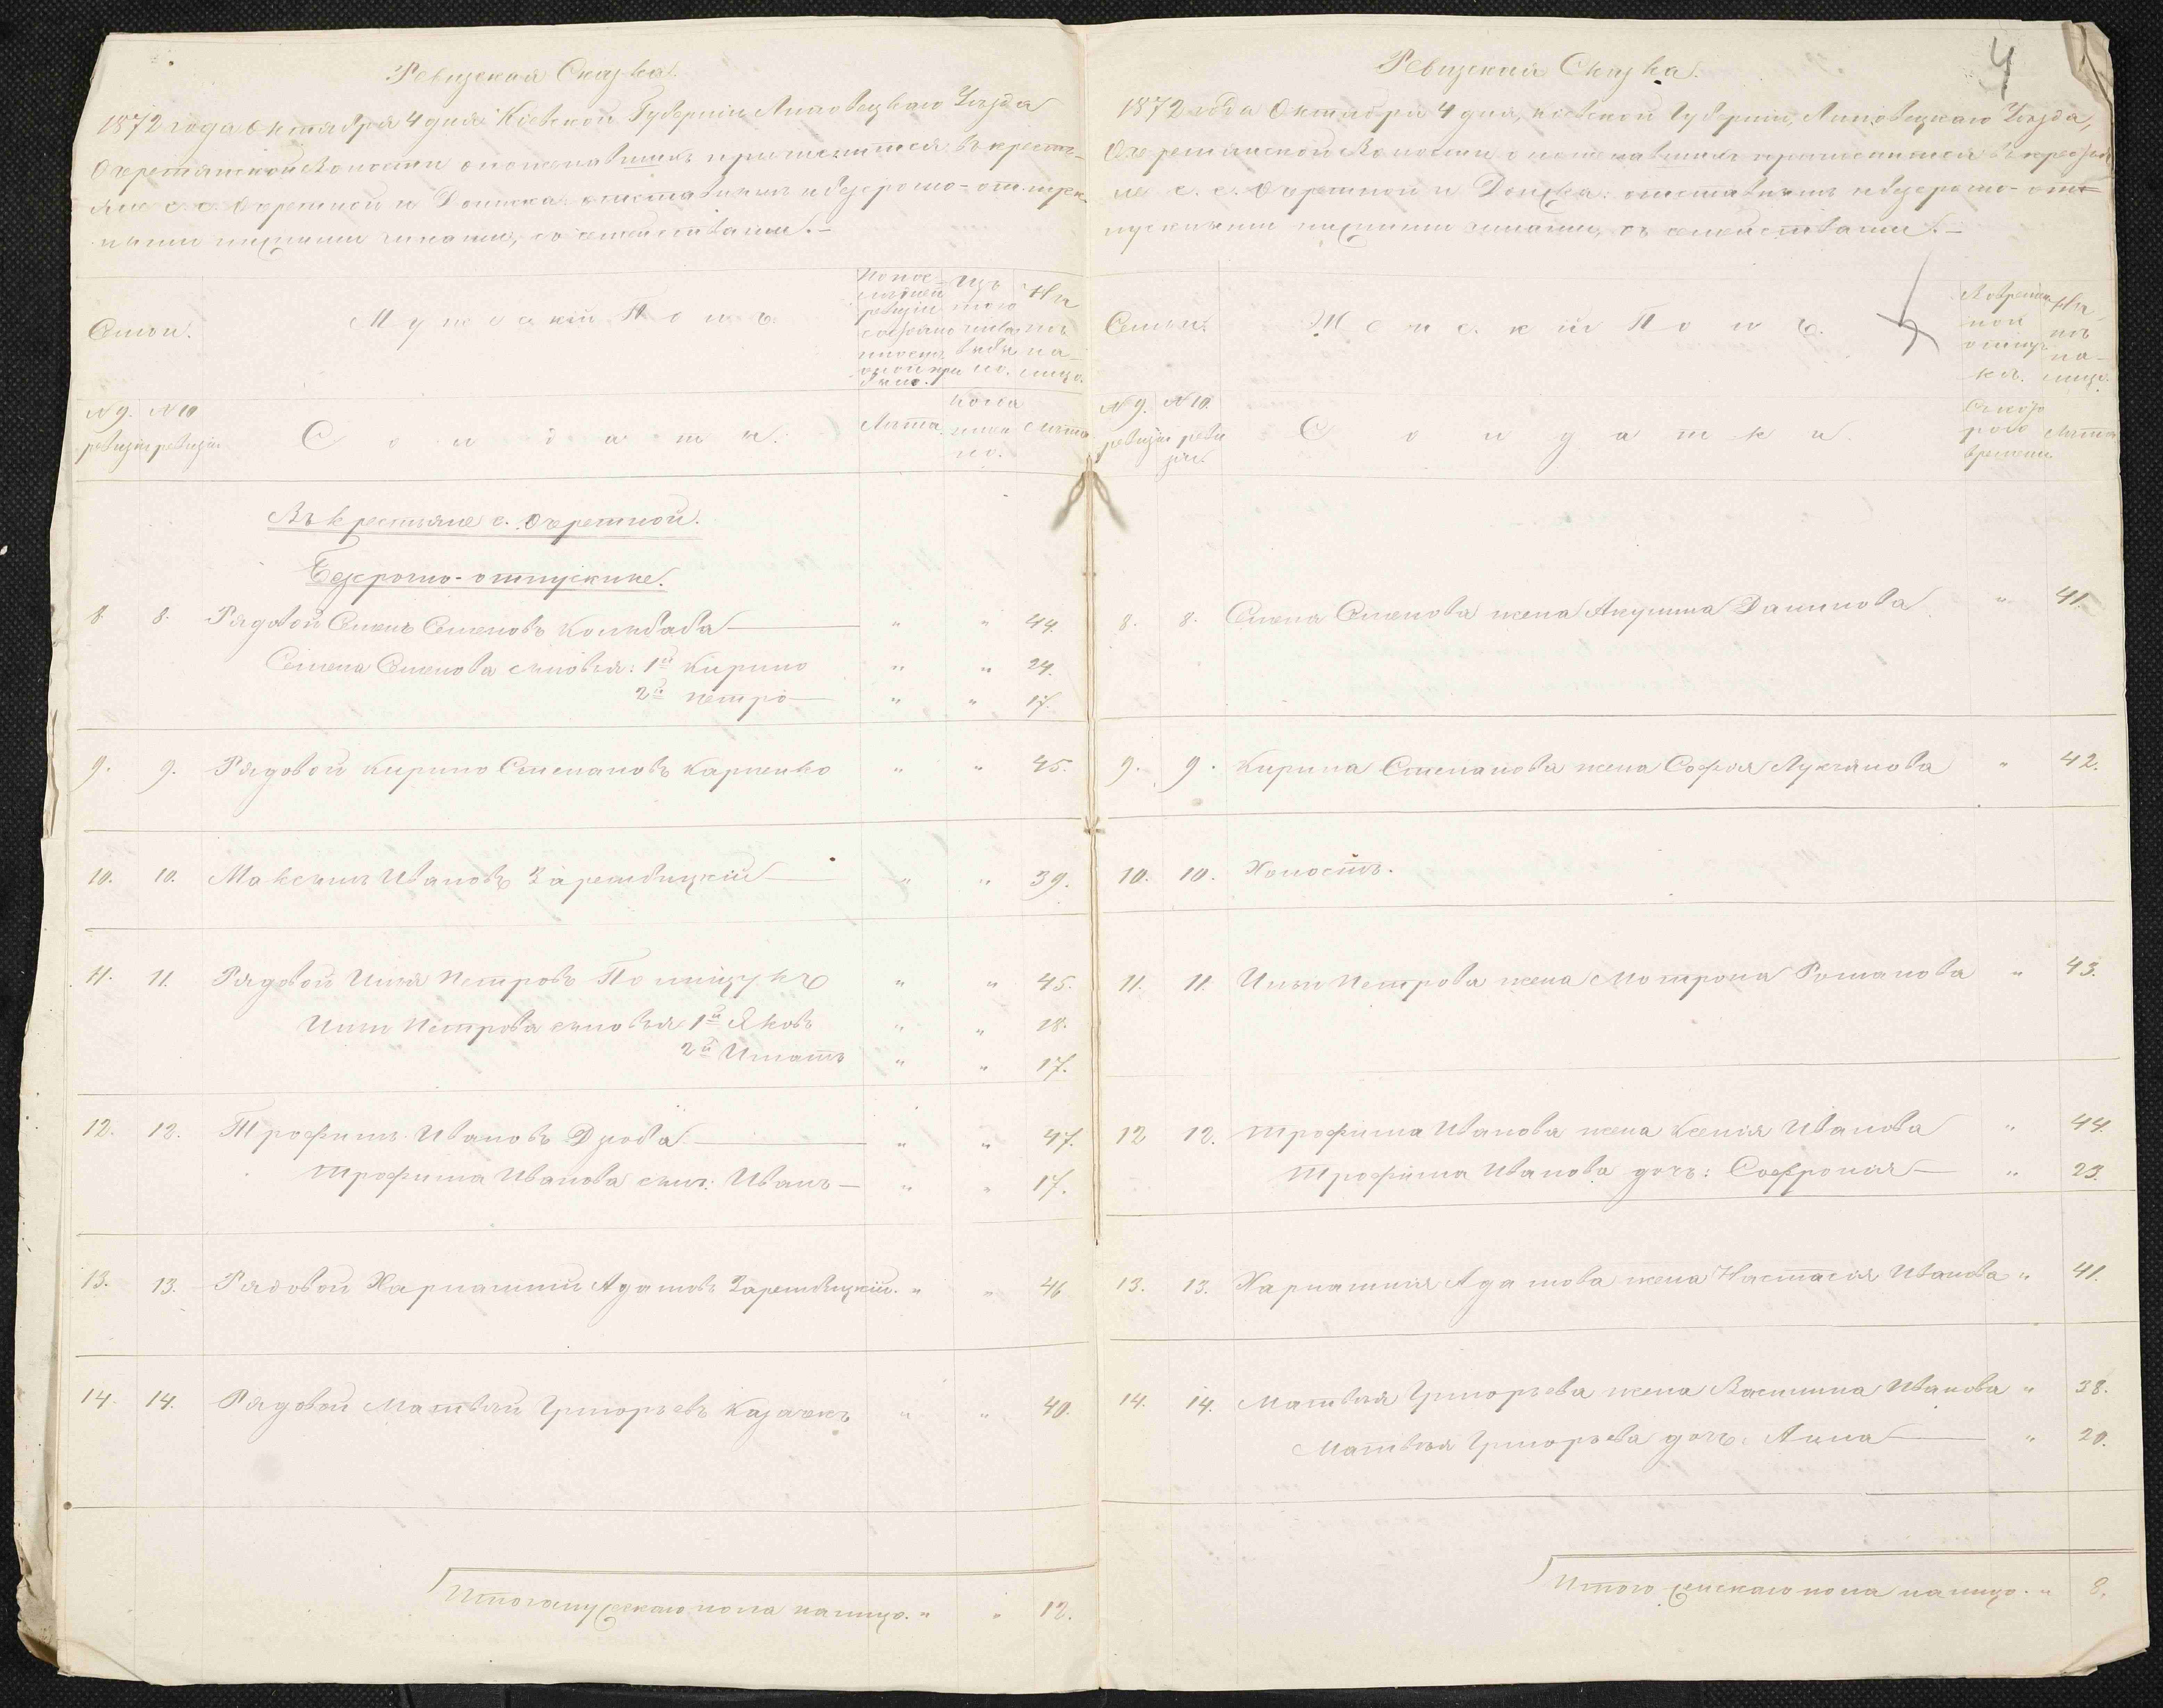 Ревизская Сказка.
1872 года Октября 4 дня Кіевской Губерніи Липовецкаго Уѣзда
Очеретянской Волости о пожелавшихъ приписатся въ крестья-
яне с. с. Очеретной и Доиска: отставными и безсрочно-отпуск-
ными нижними чинами, со семействами.-
Семьи.
Мужескій Полъ.
По пос-
лѣдней
ревизіи
состояло
Изъ
того
числа
выбы
ло.
Ны
нѣ
на-
лицо.
№ 9. ревизіи
№ 10 ревизіи
Солдаты.
Лѣта.
Когда
имен
но.
Лѣта
Въ крестьяне с. Очеретной.
Безсрочно-отпускные.
8. 8. Рядовой Семенъ Семеновъ Колибаба — " " 44.
Семена Семенова сыновья: 1й Кирило " " 24.
2й Петро — " " 17.
9. 9. Рядовой Кирило Степановъ Карпенко " " 45.
10. 10. Максимъ Ивановъ Зарембицкій — " " 39.
11. 11. Рядовой Илья Петровъ Полищукъ " " 45.
Ильи Петрова сыновья 1й Яковъ " " 18.
2й Игнатъ " " 17.
12. 12. Трофимъ Ивановъ Дзюба — " " 47.
Трофима Иванова сынъ: Иванъ — " " 17.
13. 13. Рядовой Харлампий Адамовъ Зарембицкій. " " 46
14. 14. Рядовой Матвѣй Григорьевъ Казачекъ " " 40.
Итого мужескаго пола налицо. " " 12.
4
Ревизская Сказка.
1872 года Октября 4 дня, Кіевской Губерніи, Липовецкаго Уѣзда,
Очеретянской Волости о пожелавшихъ приписатся въ крестья
не с. с. Очеретной и Доиска: отставнымъ и безсрочно-от-
пускными нижними чинами, съ семействами.-
Семьи.
Женскій Полъ.
Во времен
ной
отлуч
кѣ.
Ны
нѣ
на-
лицо.
№ 9. ревизіи
№ 10. реви
зіи.
Солдатки.
Съ кото
раго
времени.
Лѣта
8. 8. Семена Семенова жена Акулина Данилова " 41.
9. 9. Кирила Степанова жена Софія Лукьянова " 42.
10. 10. Холостъ.
11. 11. Ильи Петрова жена Мотрона Романова " 43.
12 12. Трофима Иванова жена Ксенія Иванова " 44.
Трофима Иванова дочь: Софронія — " 23.
13. 13. Харлампія Адамова жена Настасія Иванова " 41.
14. 14. Матвѣя Григорьева жена Василина Иванова " 38.
Матвѣя Григорьева дочь: Анна — " 20.
Итого женскаго пола налицо. " 8.